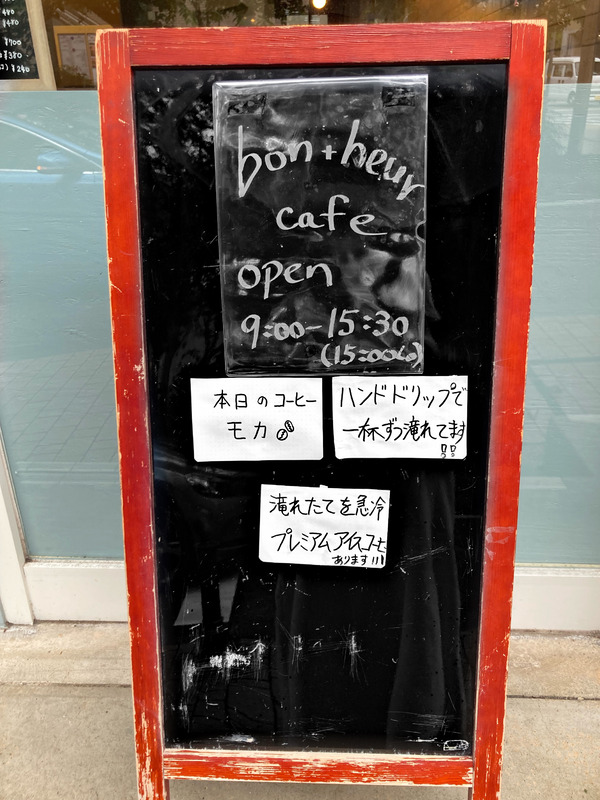 480
¥480
¥700
¥380
¥240
bon+heur
cafe
open
9:00-15:30
(15:00 Lo)
本日のコーヒー
モカ
ハンドドリップで
一杯ずつ淹れてます
!!
淹れたてを急冷
プレミアムアイスコーヒー
あります!!!